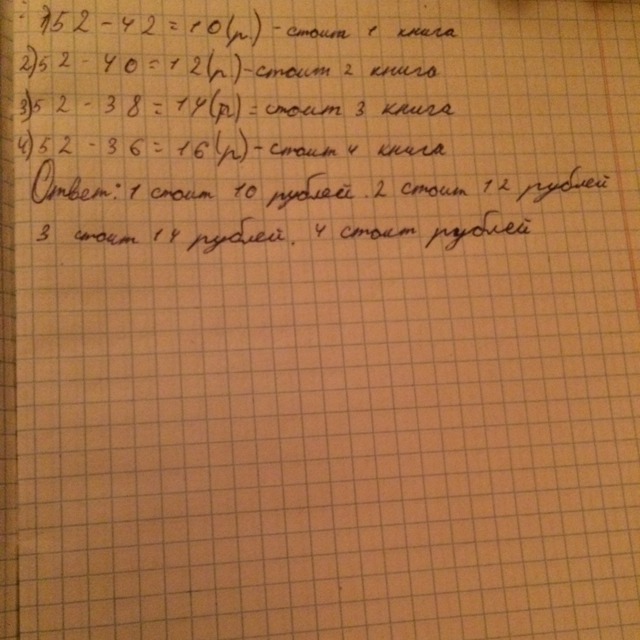 1) 52 - 42 = 10 (р.) - стоит 1 книга
2) 52 - 40 = 12 (р.) - стоит 2 книга
3) 52 - 38 = 14 (р) = стоит 3 книга
4) 52 - 36 = 16 (р) - стоит 4 книга
Ответ: 1 стоит 10 рублей. 2 стоит 12 рублей
3 стоит 14 рублей. 4 стоит рублей